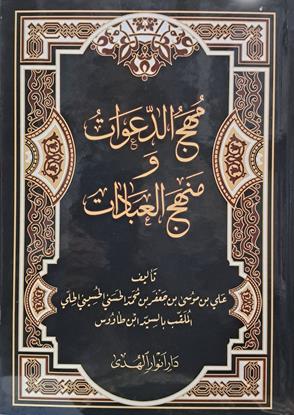 مُهَجُ الدَّعَوَاتُ
وَ
مَنهَجُ العِبَادَاتُ
تأليف
علي بن موسى بن جعفر بن محمد الحسني الحسيني الحلي
الملقب بالسيد ابن طاووس
دار أنوار الهدى